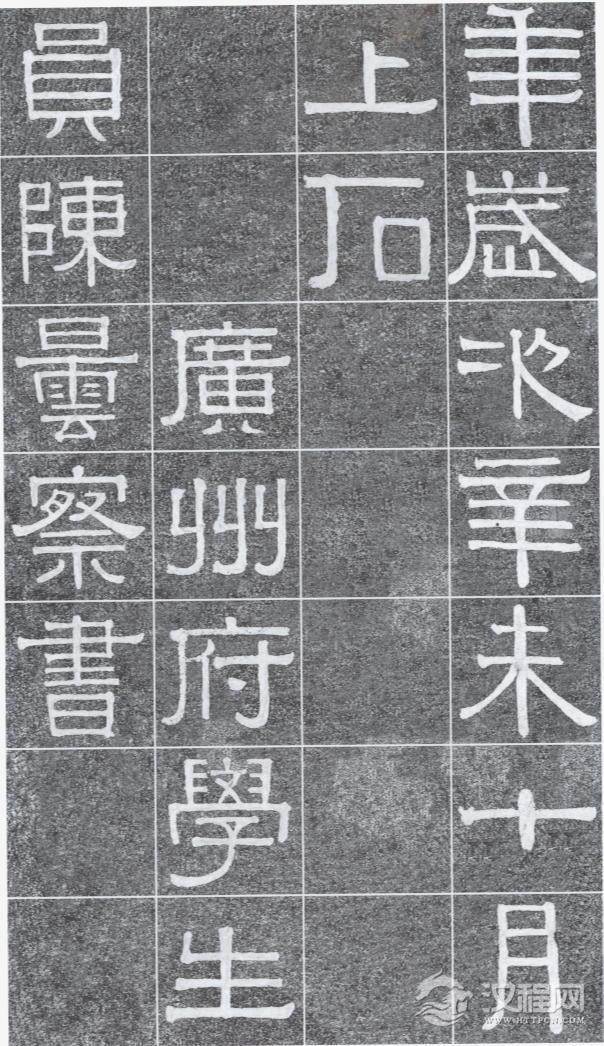 年歲次辛未十月
上石
廣州府學生
員陳曇察書
汉程网
WWW.HTTPCN.COM